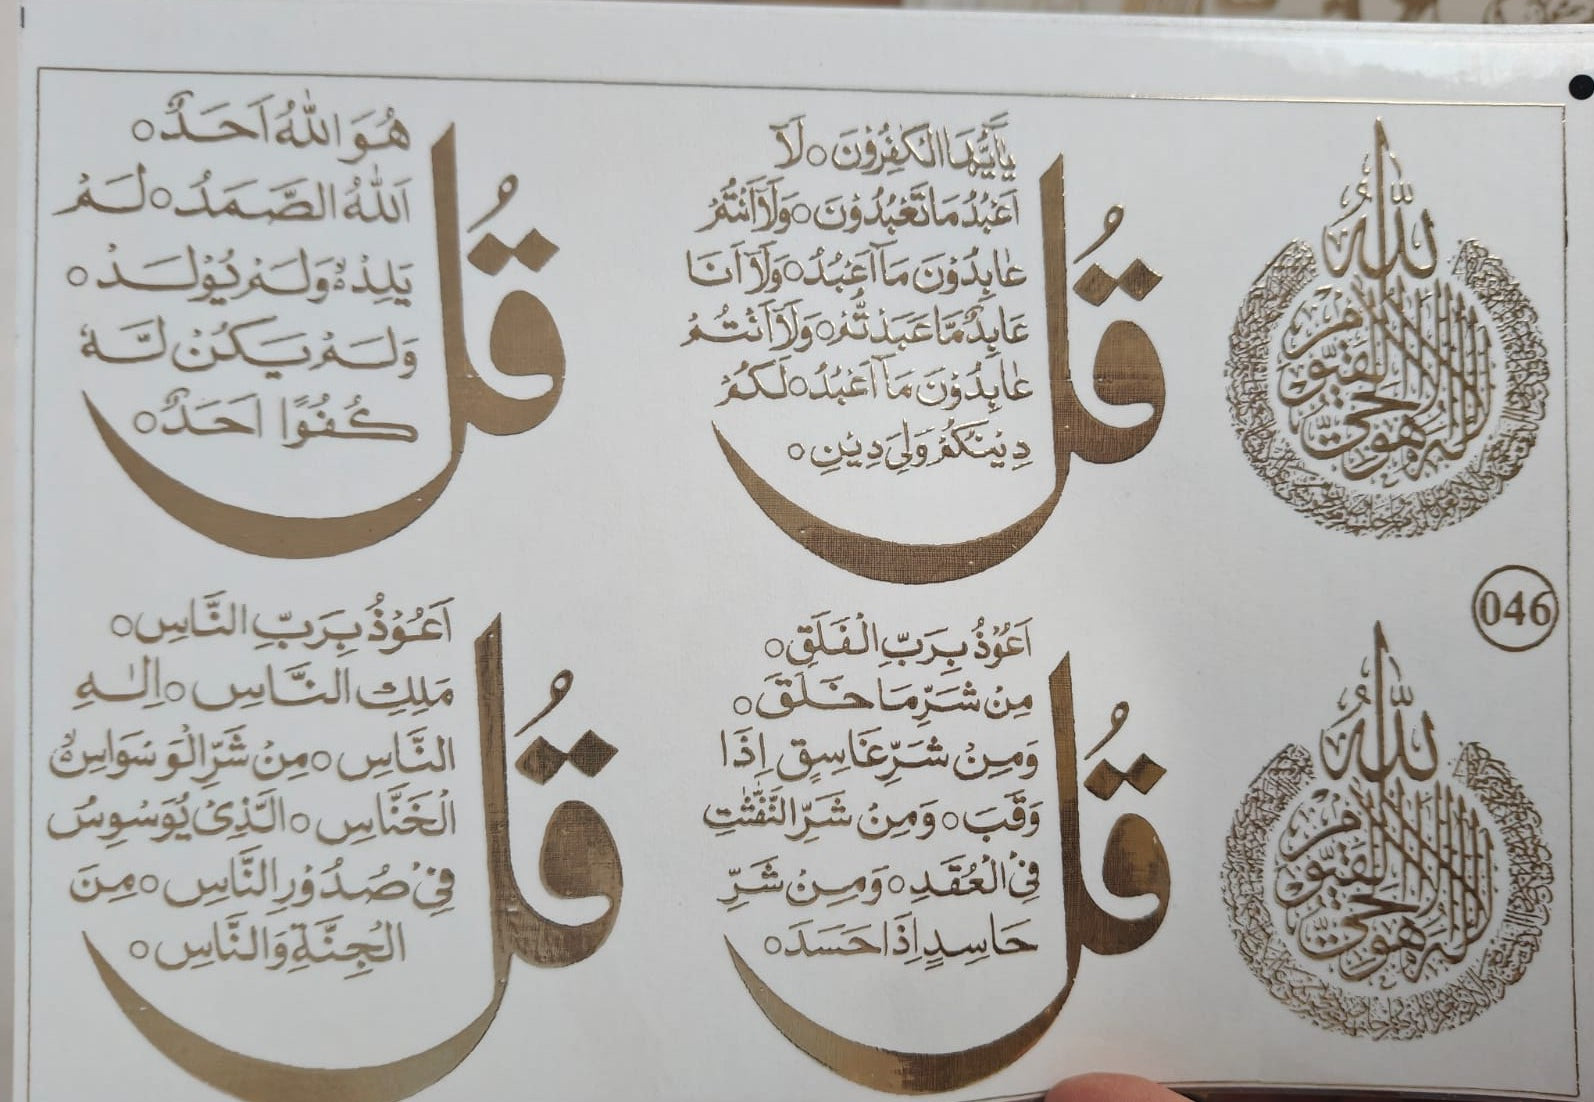 قُلْ
يٰاَيُّهَا الْكٰفِرُوْنَ○لَآ
اَعْبُدُ مَا تَعْبُدُوْنَ○وَلَآ اَنْتُمْ
عٰابِدُوْنَ مَآ اَعْبُدُ○وَلَآ اَنَا
عَابِدٌ مَّا عَبَدْتُّمْ○وَلَآ اَنْتُمْ
عٰابِدُوْنَ مَآ اَعْبُدُ○لَكُمْ
دِيْنُكُمْ وَلِيَ دِيْنِ○
قُلْ
هُوَ اللّٰهُ اَحَدٌ○
اَللّٰهُ الصَّمَدُ○لَمْ
يَلِدْ وَلَمْ يُوْلَدْ○
وَلَمْ يَكُنْ لَّهٗ
كُفُوًا اَحَدٌ○
046
قُلْ
اَعُوْذُ بِرَبِّ الْفَلَقِ○
مِنْ شَرِّ مَا خَلَقَ○
وَمِنْ شَرِّ غَاسِقٍ اِذَا
وَقَبَ○وَمِنْ شَرِّ النَّفّٰثٰتِ
فِى الْعُقَدِ○وَمِنْ شَرِّ
حَاسِدٍ اِذَا حَسَدَ○
قُلْ
اَعُوْذُ بِرَبِّ النَّاسِ○
مَلِكِ النَّاسِ○اِلٰهِ
النَّاسِ○مِنْ شَرِّ الْوَسْوَاسِ
الْخَنَّاسِ○الَّذِىْ يُوَسْوِسُ
فِىْ صُدُوْرِ النَّاسِ○مِنَ
الْجِنَّةِ وَالنَّاسِ○
اللّٰهُ
لَا اِلٰهَ اِلَّا هُوَ الْحَيُّ الْقَيُّوْمُ
اللّٰهُ
لَا اِلٰهَ اِلَّا هُوَ الْحَيُّ الْقَيُّوْمُ